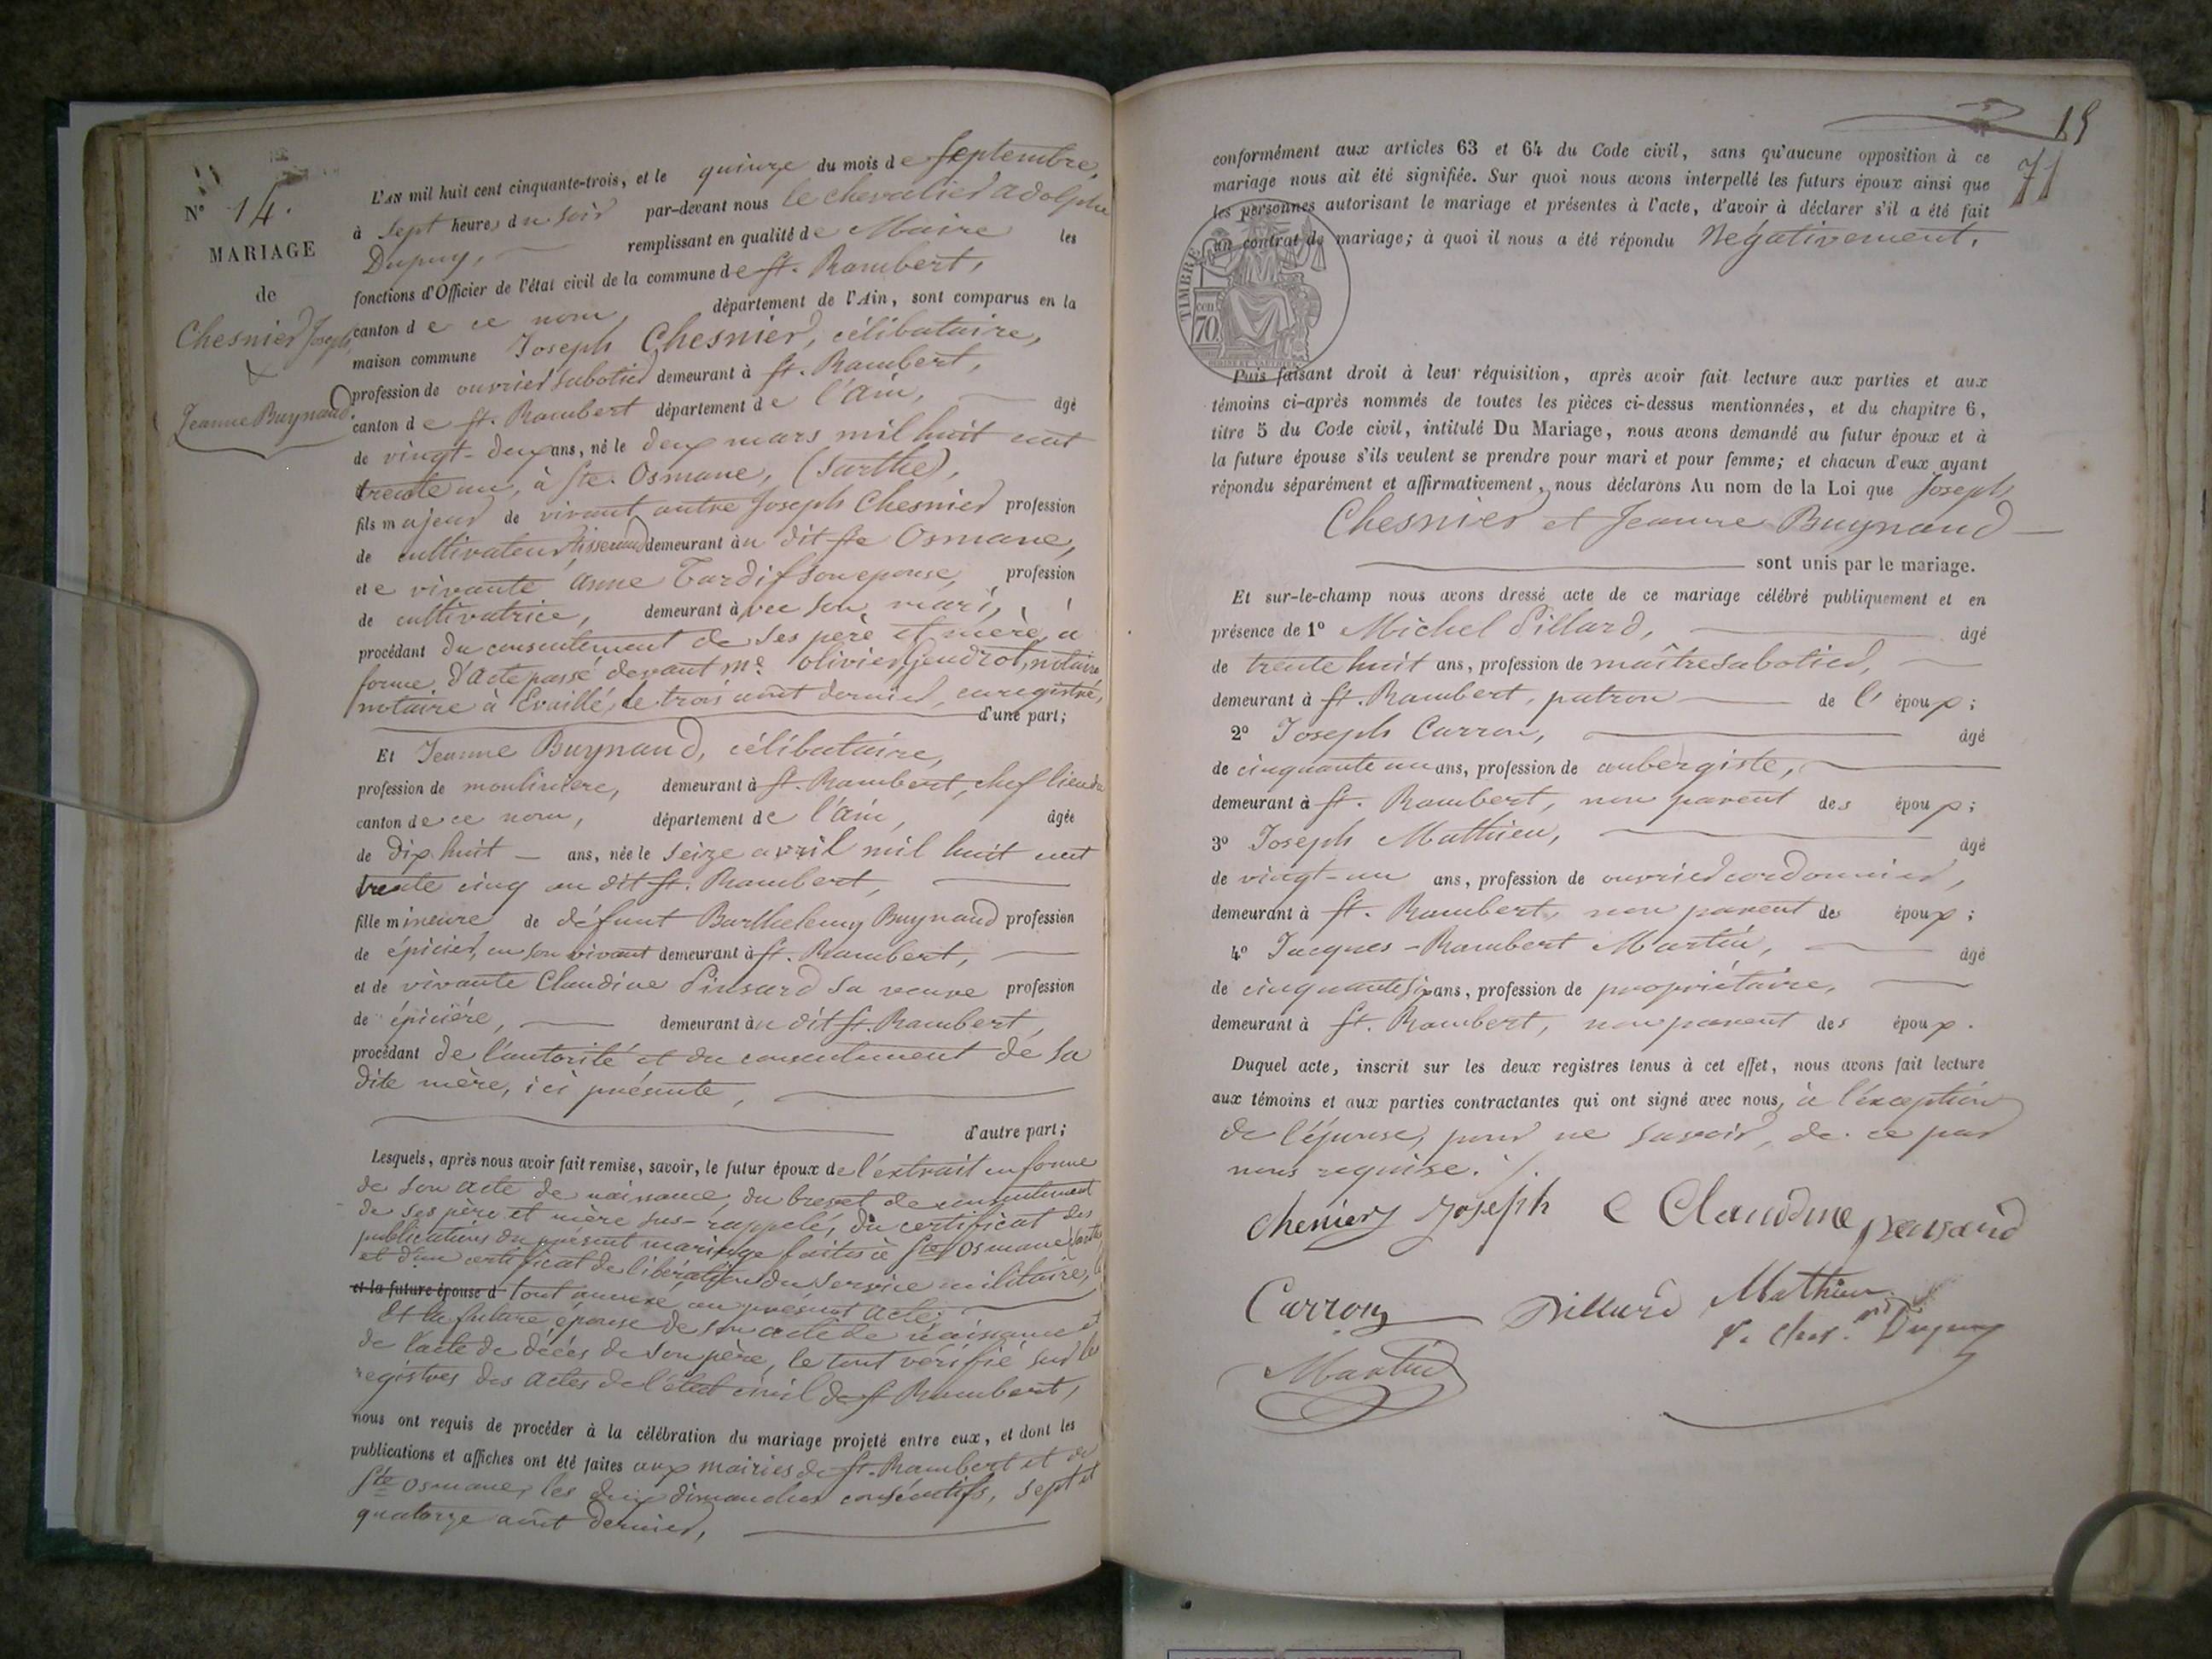 N° 14.
MARIAGE
de
Chesnier Joseph,
&
Jeanne Buynaud.
L'AN mil huit cent cinquante-trois, et le quinze du mois de Septembre,
à sept heures du soir par-devant nous le chevalier adolphe
Dupuy, remplissant en qualité de Maire les
fonctions d'Officier de l'état civil de la commune de St. Rambert,
canton de ce nom, département de l'Ain, sont comparus en la
maison commune Joseph Chesnier, célibataire,
profession de ouvrier sabotier demeurant à St. Rambert,
canton de St. Rambert département de l'Ain, âgé
de vingt-deux ans, né le deux mars mil huit cent
trente un, à Ste. Osmane, (Sarthe),
fils majeur de vivant autre Joseph Chesnier profession
de cultivateur, tisserand demeurant au dit Ste Osmane,
et de vivante Anne Tardif son epouse, profession
de cultivatrice, demeurant avec son mari,
procédant du consentement de ses père et mère, a
forme d'acte passé devant Me. olivier Gendrot, notaire
notaire à Evaillé, le trois août dernier, enregistré,
d'une part;
Et Jeanne Buynaud, célibataire,
profession de moulinière, demeurant à St. Rambert, chef lieu du
canton de ce nom, département de l'Ain, âgée
de dix huit ans, née le seize avril mil huit cent
trente cinq au dit St. Rambert,
fille mineure de défunt Barthelemy Buynaud profession
de épicier, en son vivant demeurant à St. Rambert,
et de vivante Claudine Pinsard sa veuve profession
de épicière, demeurant au dit St. Rambert,
procédant de l'autorité et du consentement de sa
dite mère, ici présente,
d'autre part;
Lesquels, après nous avoir fait remise, savoir, le futur époux de l'extrait en forme
de son acte de naissance, du brevet de consentement
de ses père et mère sus-rappelé, du certificat des
publications du présent mariage faites à Ste Osmane (Sarthe)
et d'un certificat de libération du service militaire,
et la future épouse d tout annexé au présent acte;
Et la future épouse de son acte de naissance et
de l'acte de décès de son père, le tout vérifié sur les
registres des actes de l'état civil de St Rambert,
nous ont requis de procéder à la célébration du mariage projeté entre eux, et dont les
publications et affiches ont été faites aux mairies de St. Rambert et de
Ste Osmane, les deux dimanches consécutifs, sept et
quatorze août dernier,
15
71
conformément aux articles 63 et 64 du Code civil, sans qu'aucune opposition à ce
mariage nous ait été signifiée. Sur quoi nous avons interpellé les futurs époux ainsi que
les personnes autorisant le mariage et présentes à l'acte, d'avoir à déclarer s'il a été fait
un contrat de mariage; à quoi il nous a été répondu Négativement.
TIMBRE
cen
70
Puis faisant droit à leur réquisition, après avoir fait lecture aux parties et aux
témoins ci-après nommés de toutes les pièces ci-dessus mentionnées, et du chapitre 6,
titre 5 du Code civil, intitulé Du Mariage, nous avons demandé au futur époux et à
la future épouse s'ils veulent se prendre pour mari et pour femme; et chacun d'eux ayant
répondu séparément et affirmativement, nous déclarons Au nom de la Loi que Joseph
Chesnier et Jeanne Buynaud
sont unis par le mariage.
Et sur-le-champ nous avons dressé acte de ce mariage célébré publiquement et en
présence de 1° Michel Pillard, âgé
de trente huit ans, profession de maître sabotier,
demeurant à St. Rambert, patron de l'époux;
2° Joseph Carron, âgé
de cinquante un ans, profession de aubergiste,
demeurant à St. Rambert, non parent des époux;
3° Joseph Mathieu, âgé
de vingt-un ans, profession de ouvrier cordonnier,
demeurant à St. Rambert, non parent des époux;
4° Jacques-Rambert Martin, âgé
de cinquante six ans, profession de propriétaire,
demeurant à St. Rambert, non parent des époux.
Duquel acte, inscrit sur les deux registres tenus à cet effet, nous avons fait lecture
aux témoins et aux parties contractantes qui ont signé avec nous, à l'exception
de l'épouse, pour ne savoir, de ce par
nous requise./.
chenier Joseph Claudine
Carron Pillard Mathieu
Martin Le Cher. Dupuy